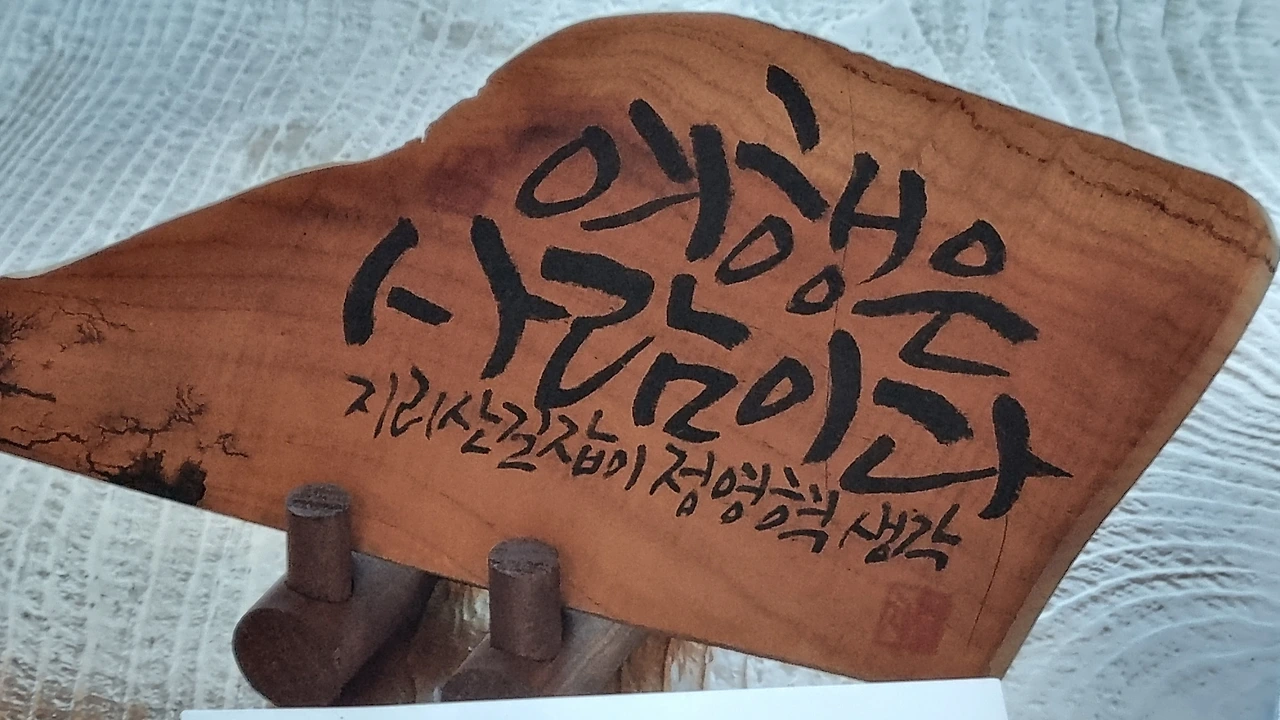 여행은
사람이다
지리산길잡이 정영혁 생각